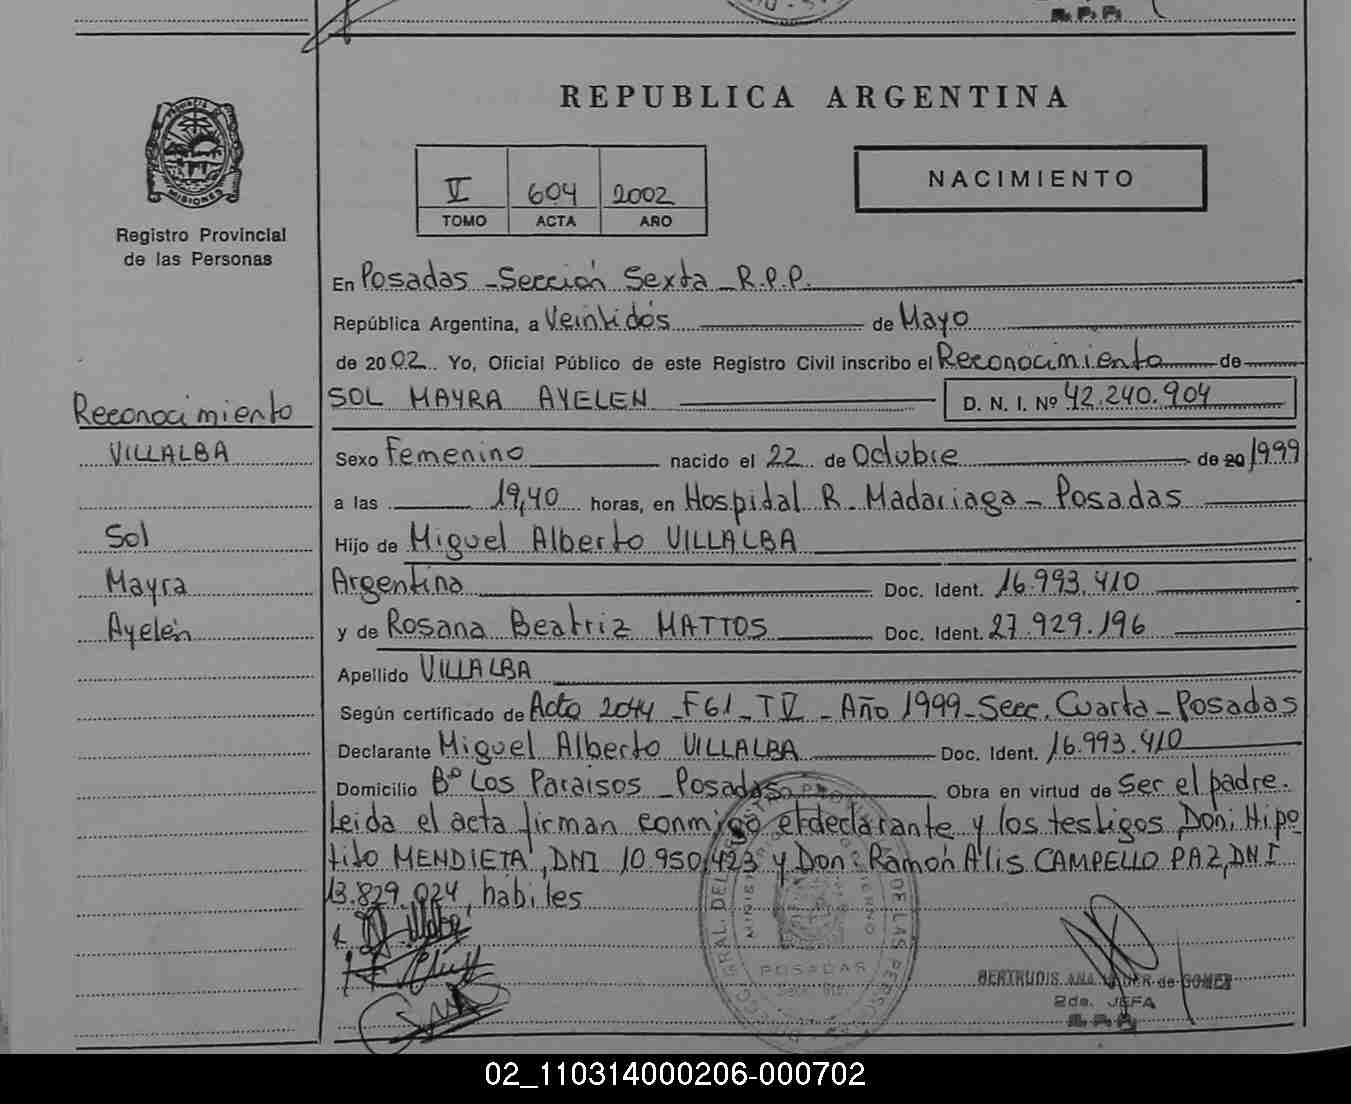 R.P.P.
REPUBLICA ARGENTINA
MISIONES
Registro Provincial
de las Personas
V 604 2002
TOMO ACTA AÑO
NACIMIENTO
En Posadas - Sección Sexta - R.P.P.
República Argentina, a Veintidós de Mayo
de 2002. Yo, Oficial Público de este Registro Civil inscribo el Reconocimiento de
SOL MAYRA AYELEN D. N. I. Nº 42.240.904
Reconocimiento
VILLALBA
Sol
Mayra
Ayelén
Sexo Femenino nacido el 22 de Octubre de 20 1999
a las 19,40 horas, en Hospital R. Madariaga - Posadas
Hijo de Miguel Alberto VILLALBA
Argentino Doc. Ident. 16.993.410
y de Rosana Beatriz MATTOS Doc. Ident. 27.929.196
Apellido VILLALBA
Según certificado de Acta 2044 - F61 - T V - Año 1999 - Secc. Cuarta - Posadas
Declarante Miguel Alberto VILLALBA Doc. Ident. 16.993.410
Domicilio Bº Los Paraisos - Posadas Obra en virtud de ser el padre.
Leida el acta firman conmigo el declarante y los testigos Don: Hipo
lito MENDIETA, DNI 10.950.423 y Don: Ramón Alis CAMPELLO PAZ, DNI
13.829.024, hábiles
POSADAS
GERTRUDIS ANA de GOMEZ
2da. JEFA
R.P.P.
02_110314000206-000702